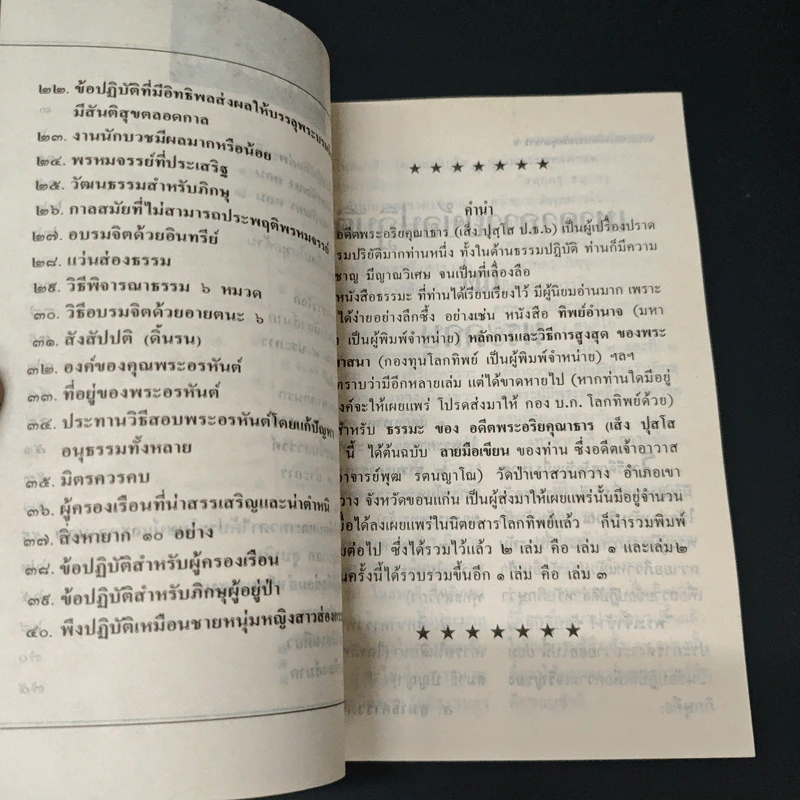 ๒๒. ข้อปฏิบัติที่มีอิทธิพลส่งผลให้บรรลุพระ
มีสันติสุขตลอดกาล
๒๓. งานนักบวชมีผลมากหรือน้อย
๒๔. พรหมจรรย์ที่ประเสริฐ
๒๕. วัฒนธรรมสำหรับภิกษุ
๒๖. กาลสมัยที่ไม่สามารถประพฤติพรหมจรรย์
๒๗. อบรมจิตด้วยอินทรีย์
๒๘. แว่นส่องธรรม
๒๙. วิธีพิจารณาธรรม ๖ หมวด
๓๐. วิธีอบรมจิตด้วยอายตนะ ๖
๓๑. สังสัปปติ (ดิ้นรน)
๓๒. องค์ของคุณพระอรหันต์
๓๓. ที่อยู่ของพระอรหันต์
๓๔. ประทานวิธีสอบพระอรหันต์โดยแก้ปัญหา
อนุธรรมทั้งหลาย
๓๕. มิตรควรคบ
๓๖. ผู้ครองเรือนที่น่าสรรเสริญและน่าตำหนิ
๓๗. สิ่งหายาก ๑๐ อย่าง
๓๘. ข้อปฏิบัติสำหรับผู้ครองเรือน
๓๙. ข้อปฏิบัติสำหรับภิกษุผู้อยู่ป่า
๔๐. พึงปฏิบัติเหมือนชายหนุ่มหญิงสาวส่อง
★ ★ ★ ★ ★ ★ ★
คำนำ
อดีตพระอริยคุณาธาร (เส็ง ปุสฺโส ป.ธ.๖) เป็นผู้เปรื่องปราด
รมปริยัติมากท่านหนึ่ง ทั้งในด้านธรรมปฏิบัติ ท่านก็มีความ
ชาญ มีญาณวิเศษ จนเป็นที่เลื่องลือ
หนังสือธรรมะ ที่ท่านได้เรียบเรียงไว้ มีผู้นิยมอ่านมาก เพราะ
ได้ง่ายอย่างลึกซึ้ง อย่างเช่น หนังสือ ทิพย์อำนาจ (มหา
เป็นผู้พิมพ์จำหน่าย) หลักการและวิธีการสูงสุด ของพระ
าสนา (กองทุนโลกทิพย์ เป็นผู้พิมพ์จำหน่าย) ฯลฯ
ทราบว่ามีอีกหลายเล่ม แต่ได้ขาดหายไป (หากท่านใดมีอยู่
งค์จะให้เผยแพร่ โปรดส่งมาให้ กอง บ.ก. โลกทิพย์ด้วย)
สำหรับ ธรรมะ ของ อดีตพระอริยคุณาธาร (เส็ง ปุสฺโส
นี้ ได้ต้นฉบับ ลายมือเขียน ของท่าน ซึ่งอดีตเจ้าอาวาส
าจารย์พุฒ รตนญาโณ) วัดป่าเขาสวนกวาง อำเภอเขา
วาง จังหวัดขอนแก่น เป็นผู้ส่งมาให้เผยแพร่นั้นมีอยู่จำนวน
มื่อได้ลงเผยแพร่ในนิตยสารโลกทิพย์แล้ว ก็นำรวมพิมพ์
มต่อไป ซึ่งได้รวมไว้แล้ว ๒ เล่ม คือ เล่ม ๑ และเล่ม๒
นครั้งนี้ได้รวบรวมขึ้นอีก ๑ เล่ม คือ เล่ม ๓
★ ★ ★ ★ ★ ★ ★